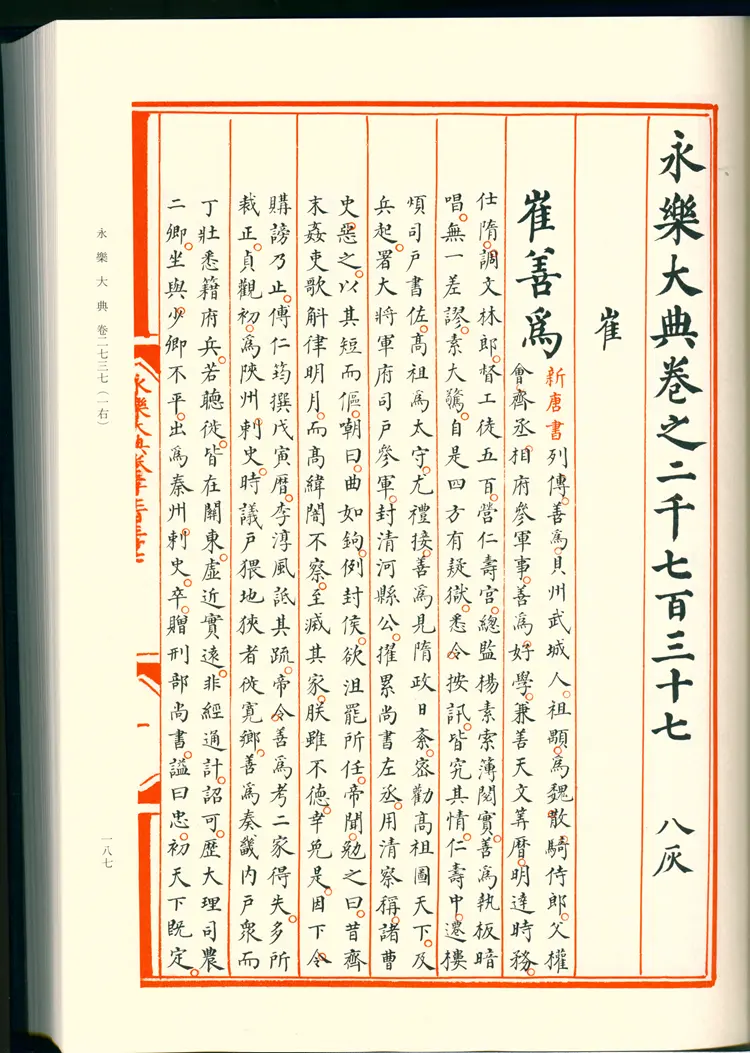 永樂大典卷之二千七百三十七 八灰
崔
崔善爲 新唐書列傳善爲貝州武城人祖顒爲魏散騎侍郎父權
會齊丞相府參軍事善爲好學兼善天文筭曆明達時務
仕隋調文林郎督工徒五百營仁壽宮總監楊素索簿閱實善爲執板暗
唱無一差謬素大驚自是四方有疑獄悉令按訊皆究其情仁壽中遷樓
煩司戶書佐高祖爲太守尤禮接善爲見隋政日紊密勸高祖圖天下及
兵起署大將軍府司戶參軍封清河縣公擢累尚書左丞用清察稱諸曹
史惡之以其短而傴嘲曰曲如鉤例封侯欲沮罷所任帝聞勉之曰昔齊
末姦吏歌斛律明月而高緯闇不察至滅其家朕雖不德幸免是因下令
購謗乃止傅仁筠撰戊寅曆李淳風詆其疏帝令善爲考二家得失多所
裁正貞觀初爲陝州刺史時議戶猥地狹者徙寬鄉善爲奏畿內戶衆而
丁壯悉籍府兵若聽徙皆在關東虛近實遠非經通計詔可歷大理司農
二卿坐與少卿不平出爲秦州刺史卒贈刑部尚書謚曰忠初天下既定
永樂大典 卷二七三七（一右）
一八七